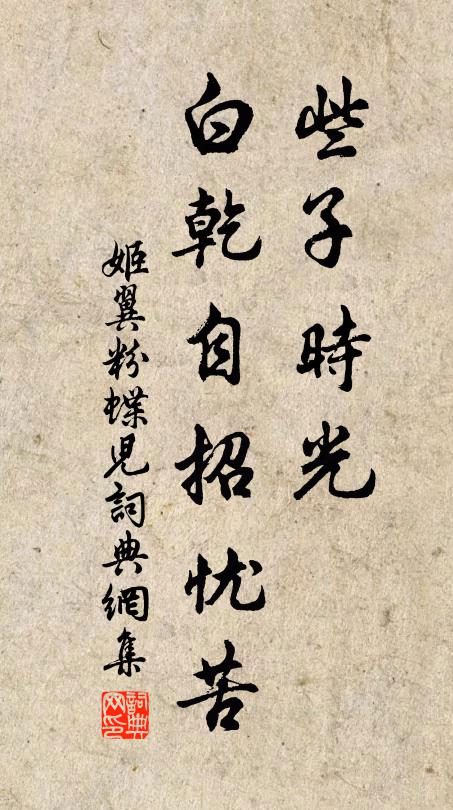 些子時光
白乾自招忧苦
姬翼粉蝶儿詞典網集
詞典網印